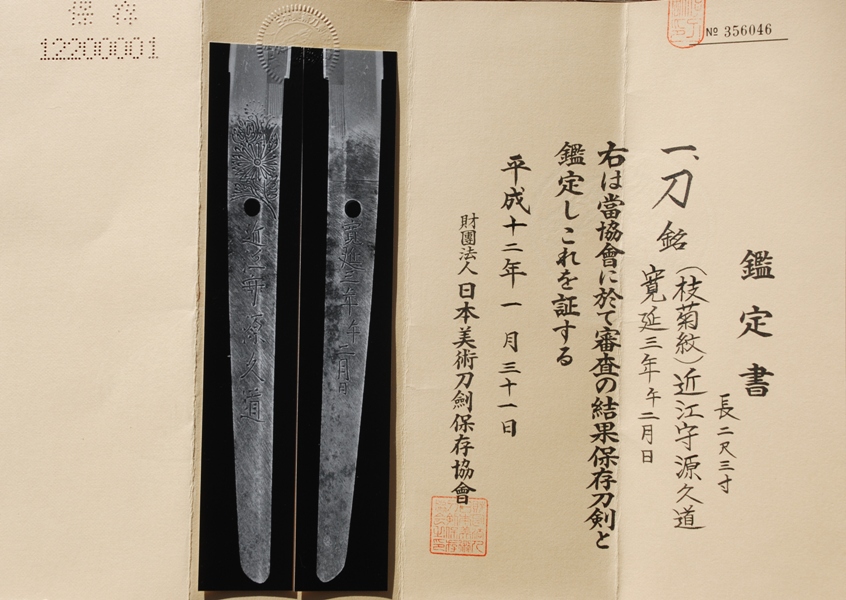 № 356046
鑑定書
長二尺三寸
一、刀 銘 (枝菊紋) 近江守源久道
寛延三年午二月日
右は當協會に於て審査の結果保存刀剣と
鑑定しこれを証する
平成十二年一月三十一日
財團法人 日本美術刀劍保存協會
寛延三年午二月日
近江守源久道
保存
12200001